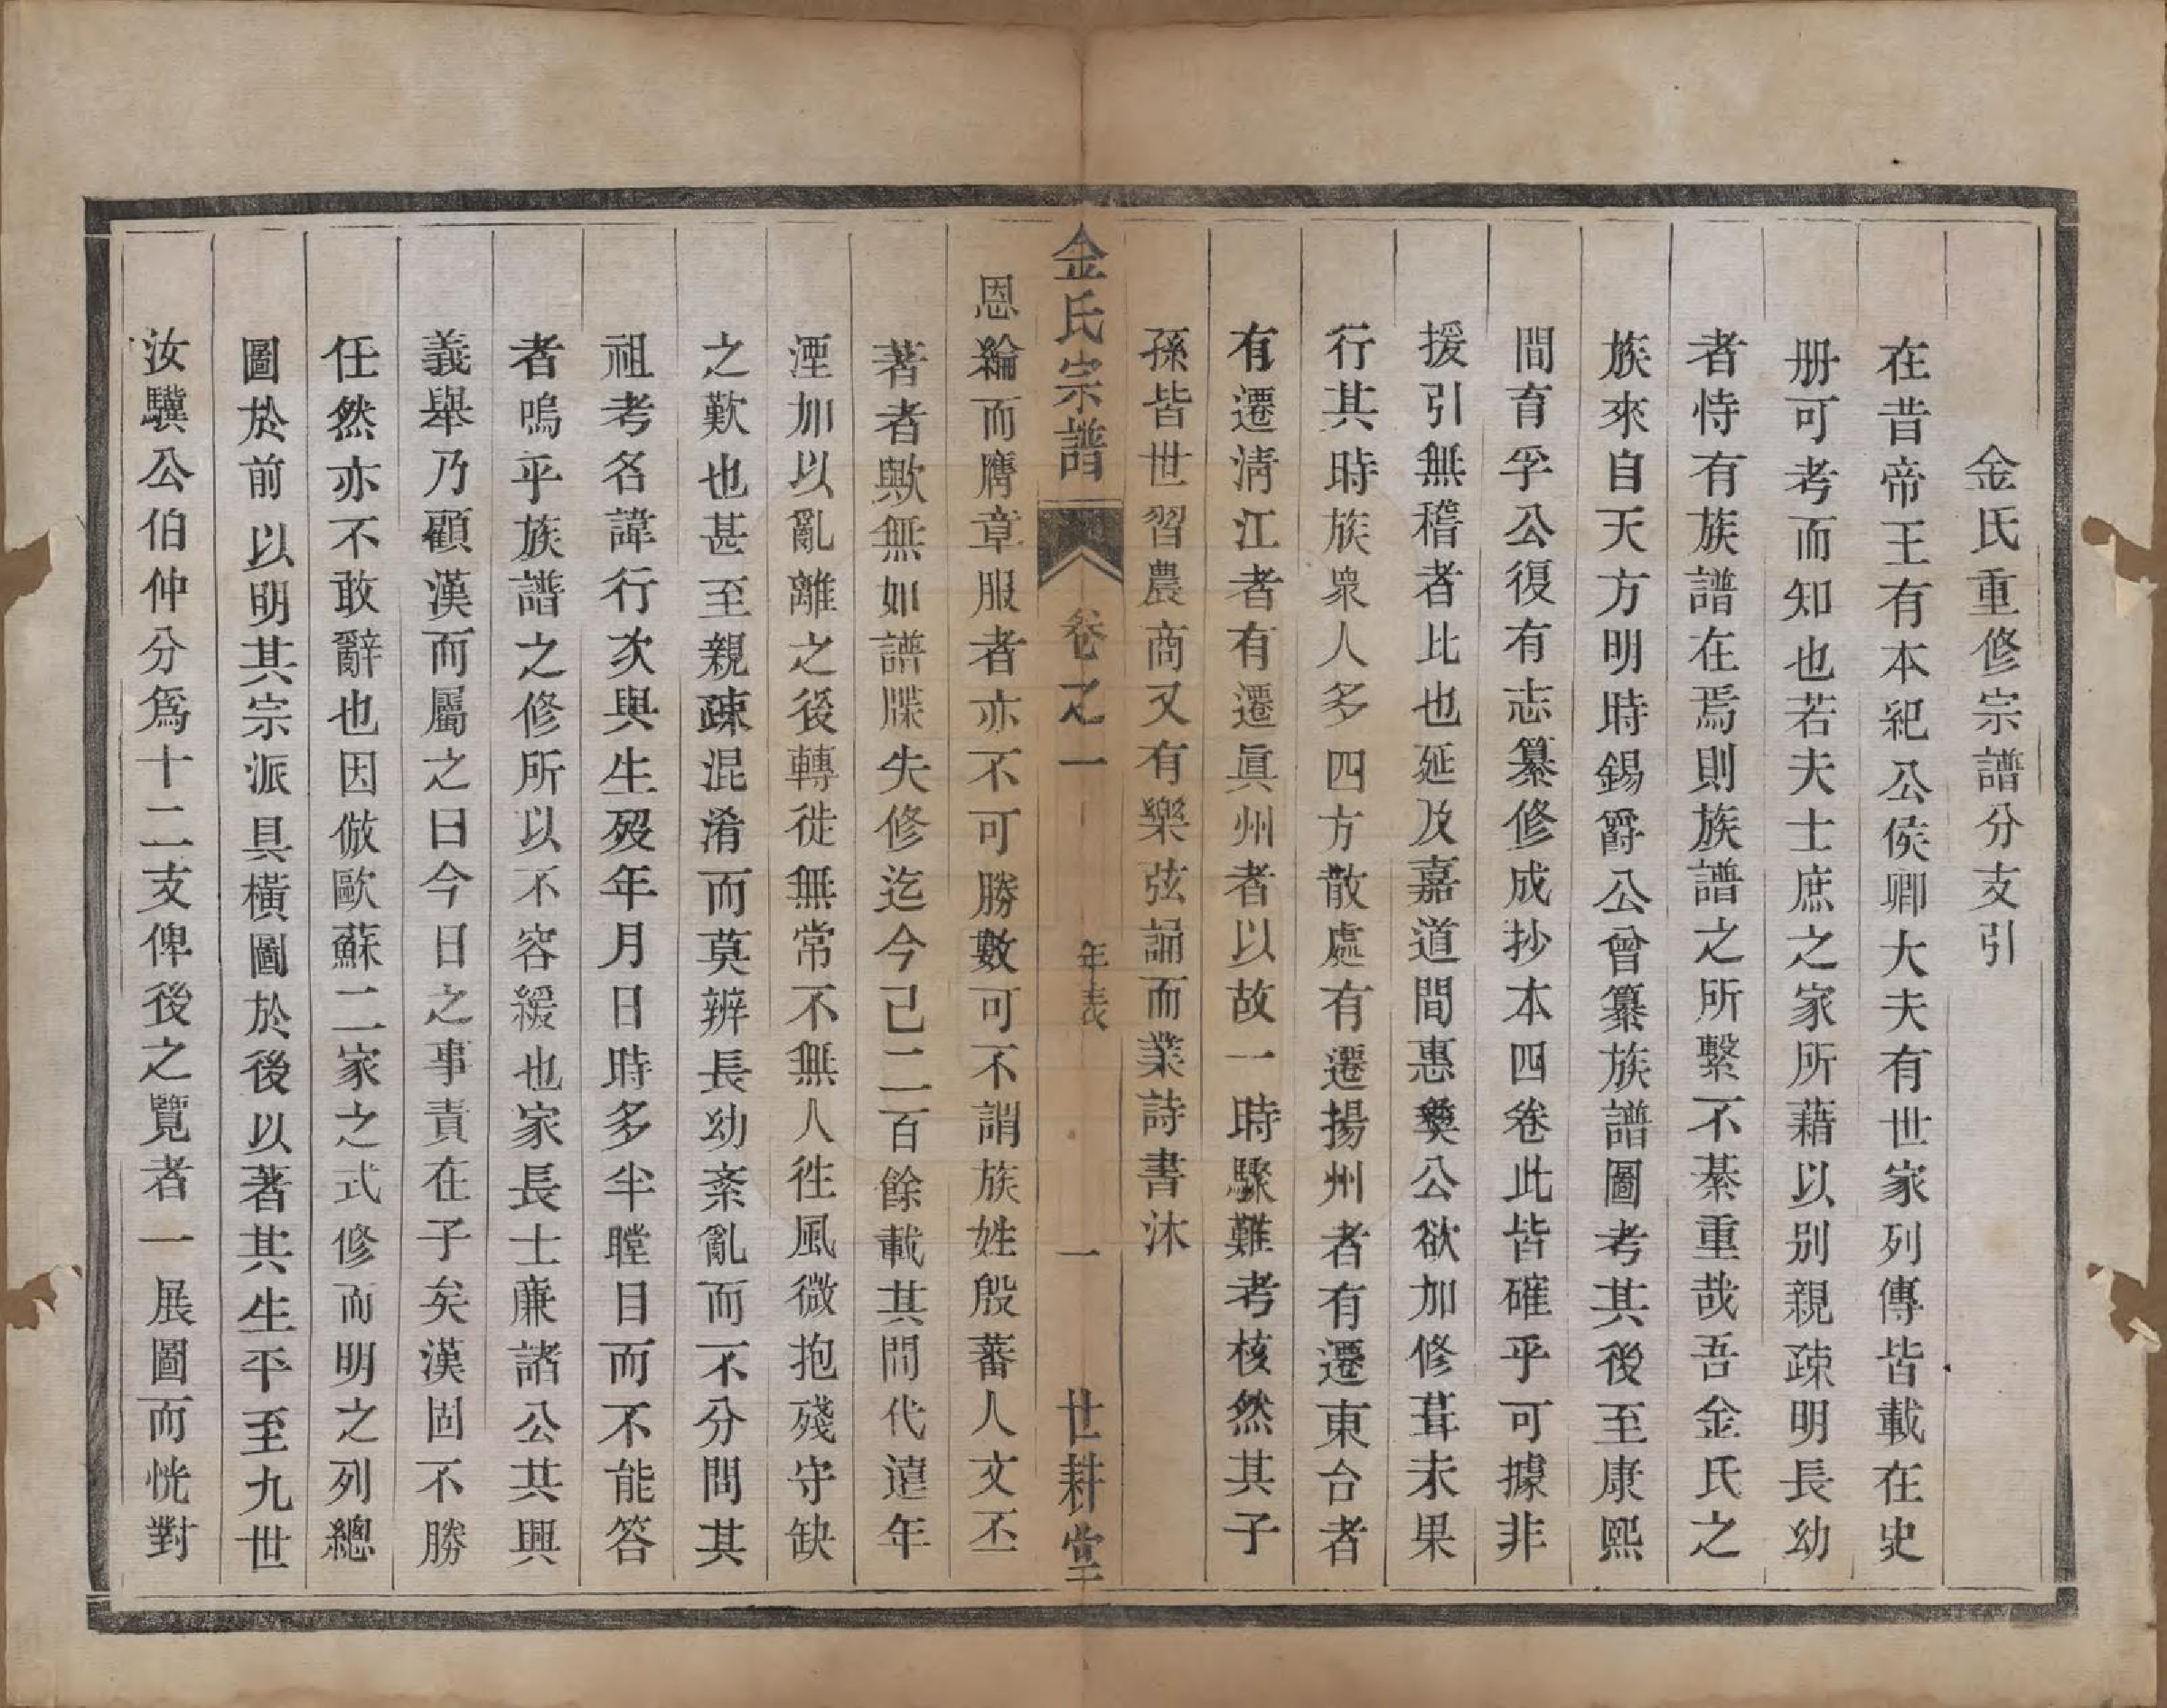 金氏重修宗譜分支引
在昔帝王有本紀公侯卿大夫有世家列傳皆載在史
册可考而知也若夫士庶之家所藉以別親疎明長幼
者恃有族譜在焉則族譜之所繫不綦重哉吾金氏之
族來自天方明時錫爵公曾纂族譜圖考其後至康熙
間育孚公復有志纂修成抄本四卷此皆確乎可據非
援引無稽者比也延及嘉道間惠𡚒公欲加修葺未果
行其時族衆人多四方散處有遷揚州者有遷東台者
有遷清江者有遷眞州者以故一時驟難考核然其子
孫皆世習農商又有樂弦誦而業詩書沐
金氏宗譜 卷之一 年表 一 世耕堂
恩綸而膺章服者亦不可勝數可不謂族姓殷蕃人文丕
著者歟無如譜牒失修迄今已二百餘載其間代遠年
湮加以亂離之後轉徙無常不無人徃風微抱殘守缺
之歎也甚至親疎混淆而莫辨長幼紊亂而不分問其
祖考名諱行次與生歿年月日時多半瞠目而不能答
者嗚乎族譜之修所以不容緩也家長士廉諸公共興
義舉乃顧漢而屬之曰今日之事責在子矣漢固不勝
任然亦不敢辭也因倣歐蘇二家之式修而明之列總
圖於前以明其宗派具橫圖於後以著其生平至九世
汝驥公伯仲分爲十二支俾後之覽者一展圖而恍對